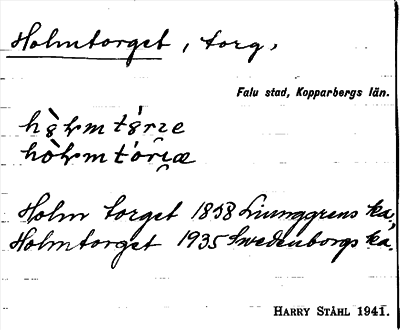 Holmtorget, torg,
Falu stad, Kopparbergs län.
Holm torget 1858 Ljunggrens ka,
Holmtorget 1935 Swedenborgs ka.
HARRY STÅHL 1941.